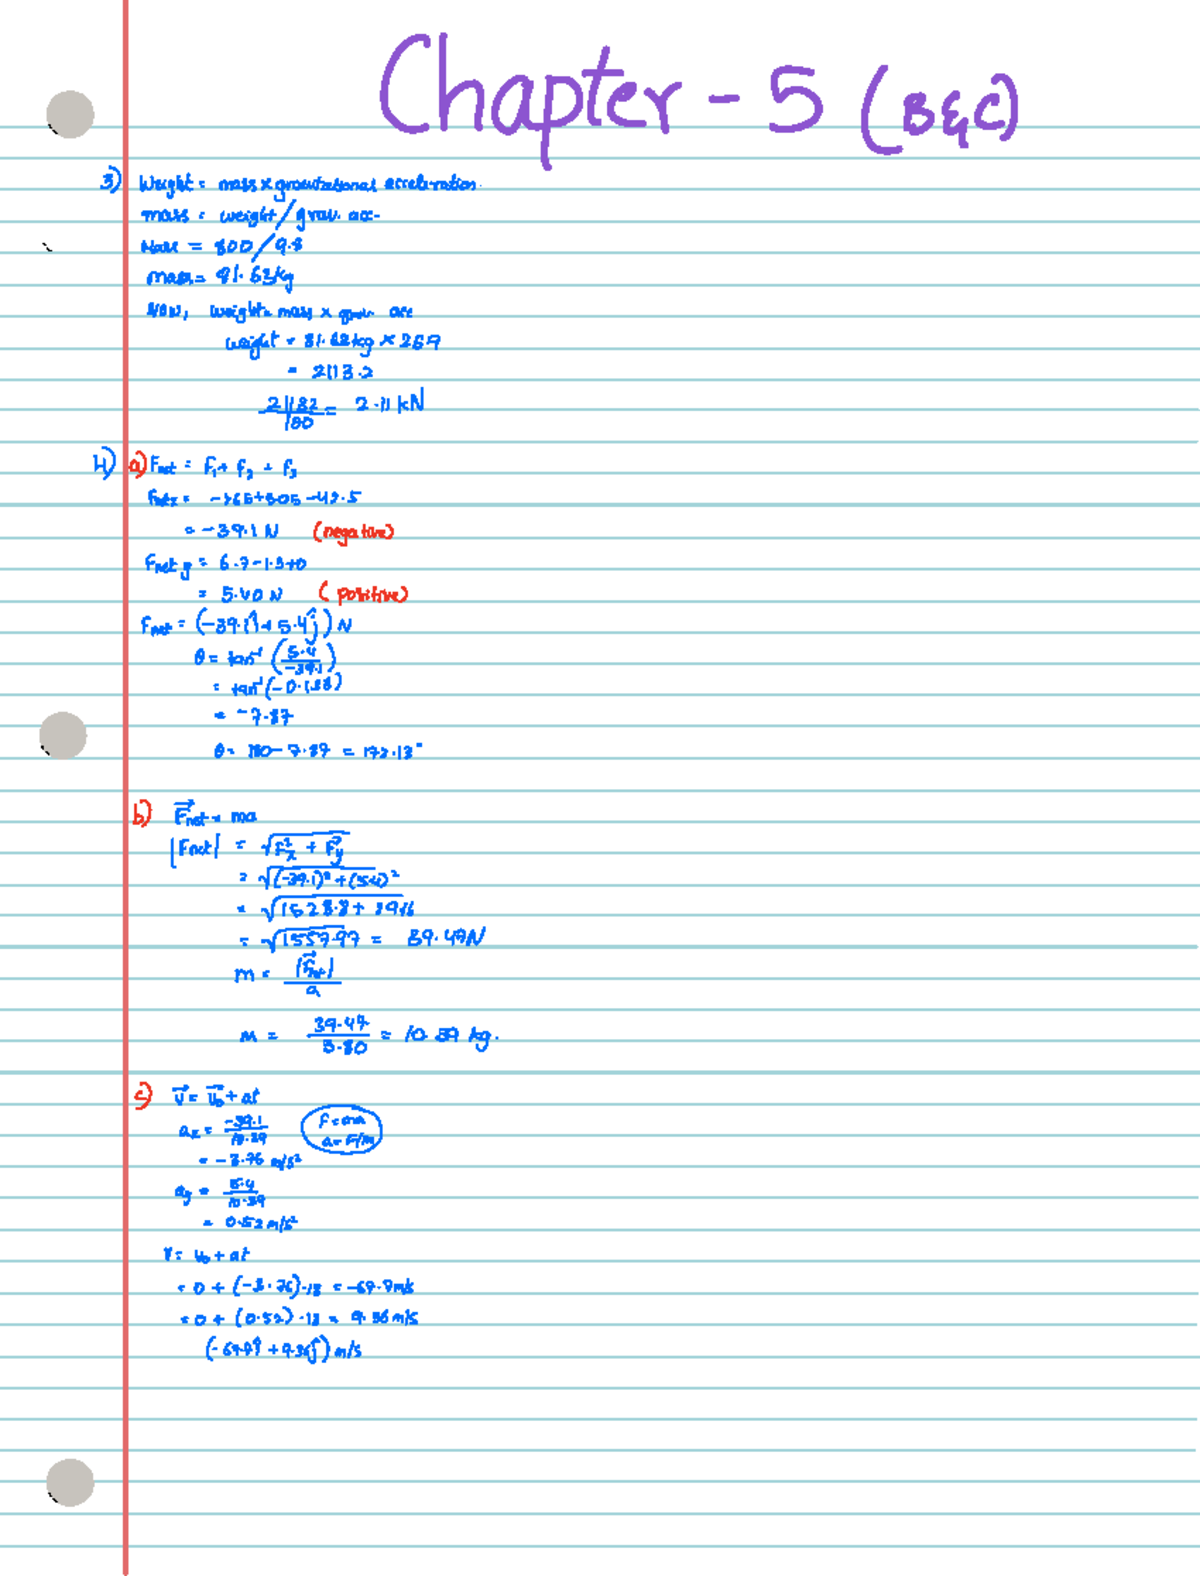 Chapter - 5 (B&C)
3) Weight = mass x gravitational acceleration.
mass = weight / grav. acc.
= 800 / 9.8
mass = 81.63kg
Now, weight = mass x grav. acc
weight = 81.63kg x 259
= 2113.2
= 2.11 kN
4) a) Fnet = F₁ + F₂ + F₃
= -39.1 N (negative)
Fnet y = 6.7 - 1.3 + 0
= 5.40 N (positive)
Fnet = (-39.1î + 5.4ĵ) N
θ = tan⁻¹ (5.4 / -39.1)
= tan⁻¹ (-0.138)
= -7.87
θ = 180 - 7.87 = 172.13°
b) F⃗net = ma
|Fnet| = √F²x + F²y
= √(-39.1)² + (5.4)²
= √1557.97 = 39.47N
m = |F⃗net| / a
m = 39.47 / 3.80 = 10.39 kg.
c) v⃗ = v⃗₀ + at
ax = -39.1 / 10.39 F = ma
a = F/m
= -3.76 m/s²
ay = 5.4 / 10.39
= 0.52 m/s²
v = v₀ + at
= 0 + (-3.76) · 18 = -67.7m/s
= 0 + (0.52) · 18 = 9.36 m/s
m/s